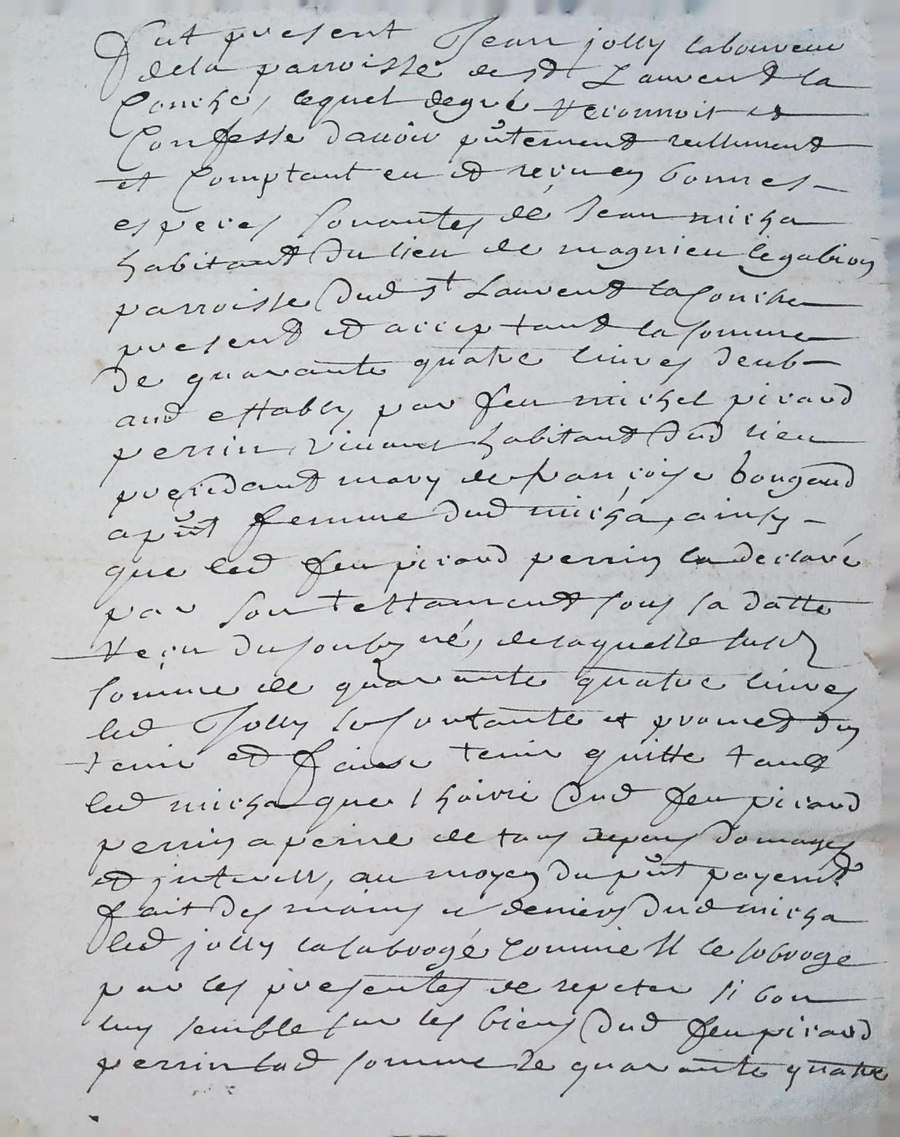 fut present Jean jolly laboureur
dela parroisse de St Laurend la
Conche, lequel degré reconnoit et
Confesse davoir pñtemend reellemend
et Comptant eu et receu en bonnes
especes sonantes de Jean micha
habitand du lieu de magnieu legabion
parroisse dud St Laurend la Conche
presend et acceptand la somme
de quarante quatre livres deub
aud ettably par feu michel picard
perrin vivant habitand dud lieu
precedand mary de françoise bougand
a pñt femme dud micha, ainsy
que led feu picard perrin la declaré
par son testamend sous sa datte
receu du soubzné, de laquelle susd
somme de quarante quatre livres
led Jolly se contante et promed den
tenir et faire tenir quitte tant
led micha que lhoirie dud feu picard
perrin a peine de tous depans domages
et jnterests, au moyen du pñt payemd
fait des mains et deniers dud micha
led jolly la sabrogé comme Il le sobroge
par les presentes de repeter si bon
luy semble sur les biens dud feu picard
perrin lad somme de quarante quatre